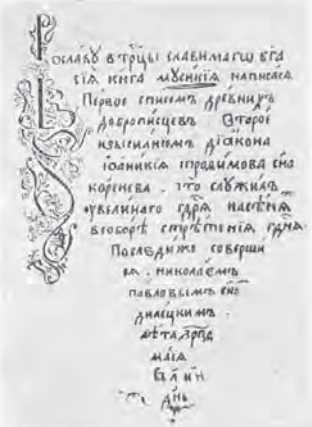 Во славу в трⷪ҇цы славимагѡ бг҃а
сїѧ книга мусикїѧ написасѧ
Первое списомъ древнихъ
доброписцевъ Второе
изысиланїемъ дїакона
їѡаникїѧ трофимова сн҃а
коренева . что служилъ
ꙋ великаго гдⷭ҇рѧ на сѣнѧхъ
в соборѣ стрѣтенїѧ гдⷭ҇нѧ
Последиже соверши
сѧ . николаемъ
павловымъ сн҃омъ
дилецкимъ .
лѣта
маїѧ
дн҃ь